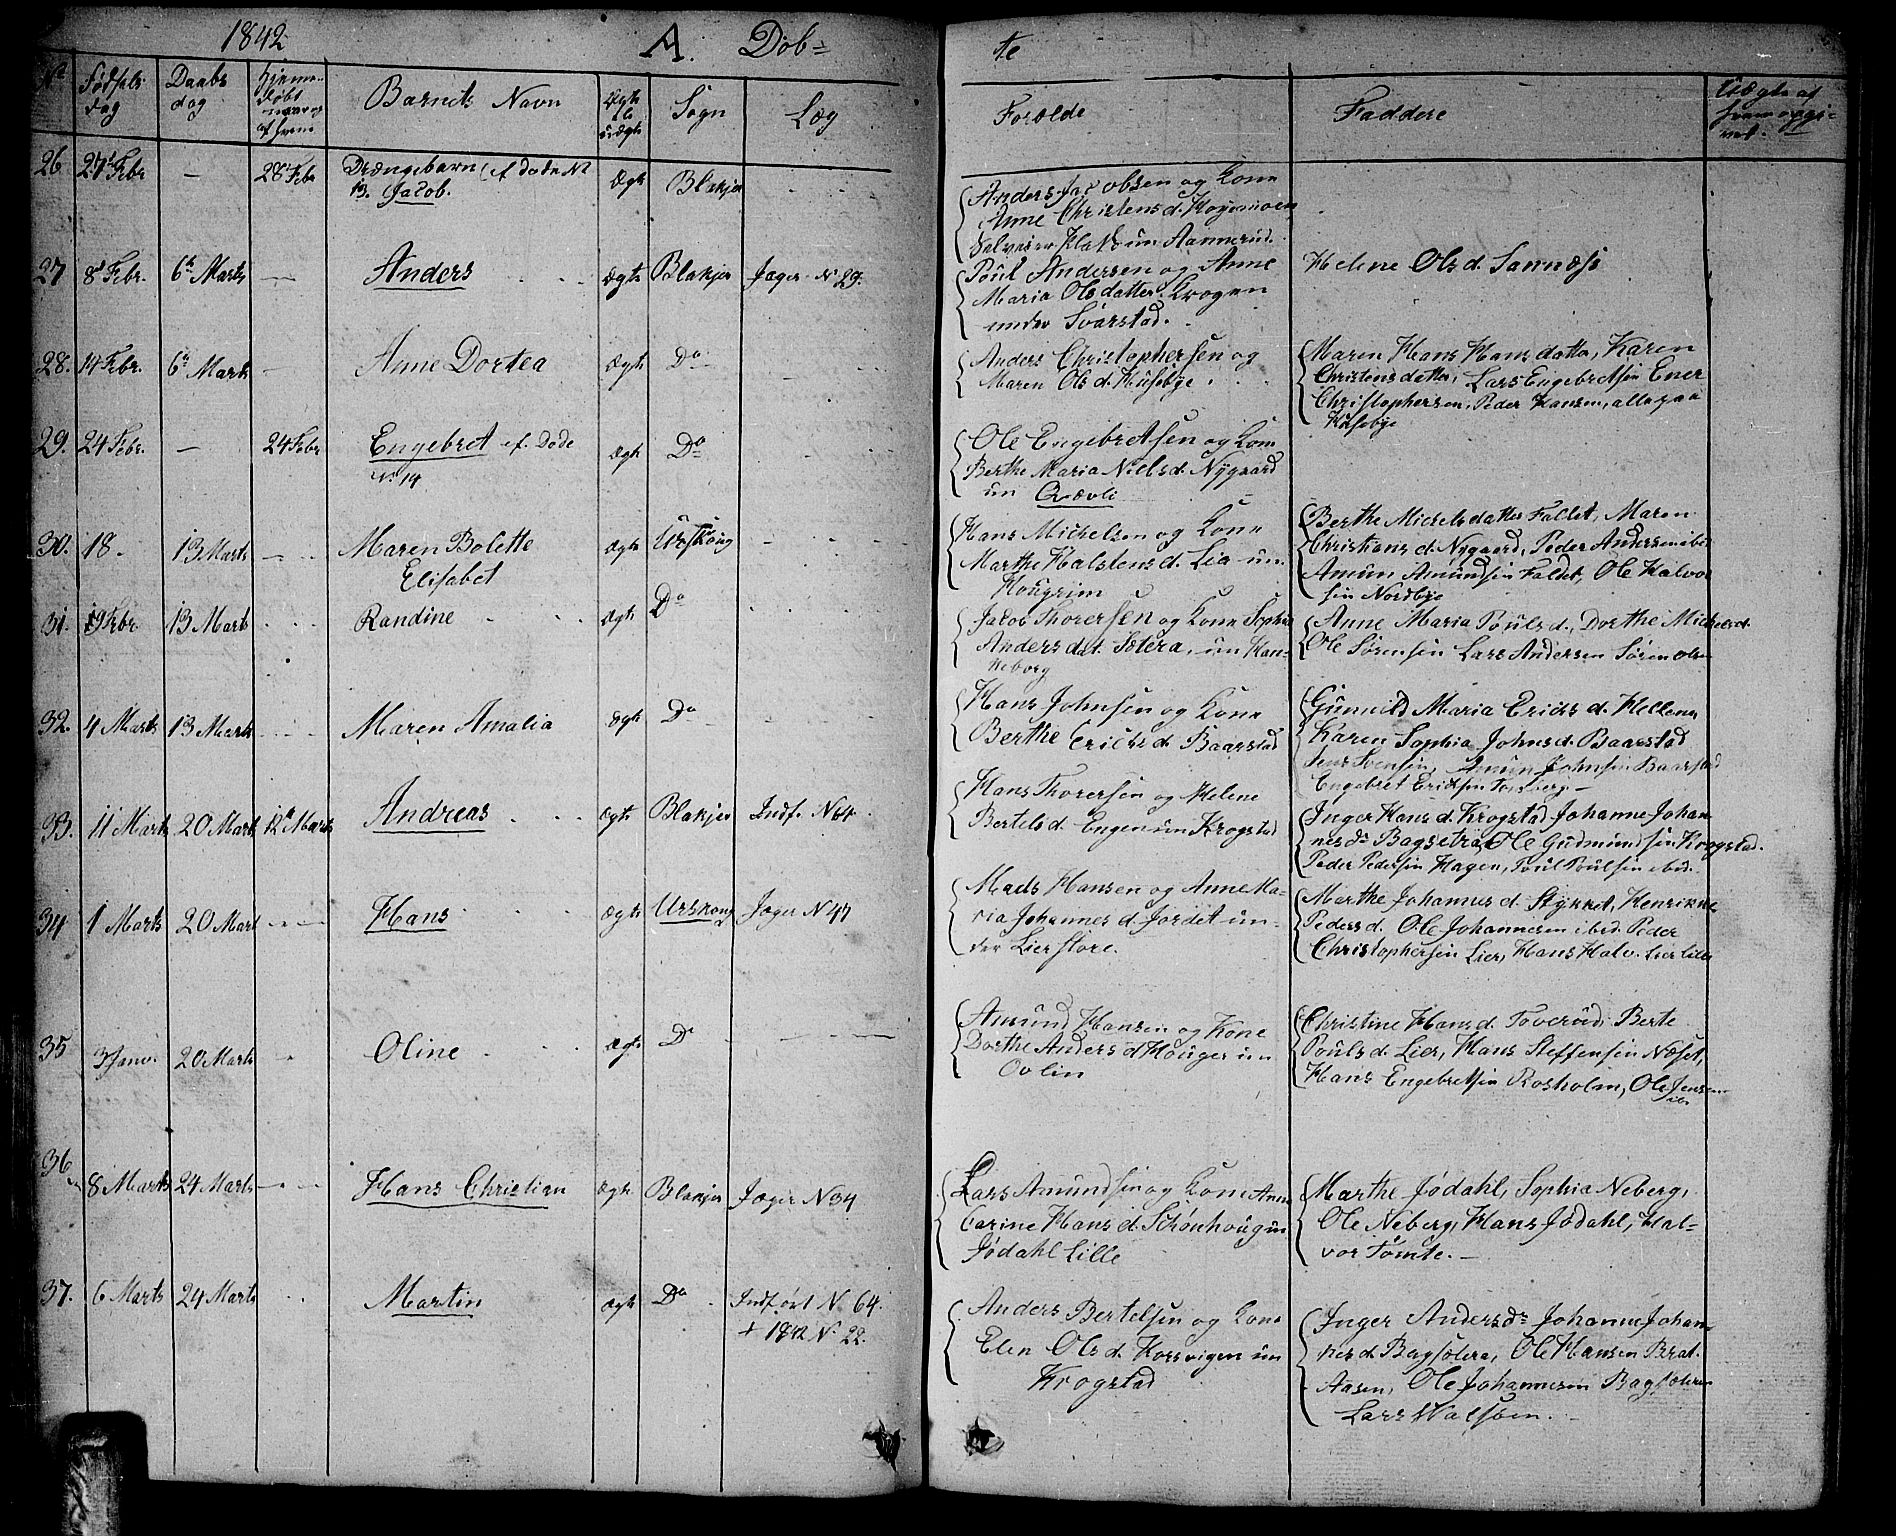 1842 A. Døb= te
No Fødsels dag Daabs dag Hjemedøbt naar og af hvem Barnets Navn Ægte el. uægte Sogn Læg Forælde Faddere
26 27 Febr – 28 Febr Drængebarn cf døde N 13. Jacob. Ægte Blakjer - -
Anders Jacobsen og Kone
Anne Christens d.
27 8 Febr. 6te Marts — Anders ægte Blakjer Jæger N 29.
Poul Andersen og Anne
Maria Olsdatter Krogen
under Svarstad.
Helene Ols d. Sannæss
28. 14 Febr. 6te Marts – Anne Dortea ægte Do
Anders Christophersen og
Maren Ols d. Husebye.
Maren Hans Hansdatter, Karen
Christensdatter, Lars Engebretsen Ener
Christophersen, Peder Hansen, alle paa
Husebye
29. 24 Febr. – 24 Febr Engebret cf. Døde No 14 ægte Do
Ole Engebretsen og Kone
Berthe Maria Niels d. Nygaard
un Qvævli
30. 18. 13 Marts Maren Bolette
Elisabet ægte Urskoug
Hans Michelsen og Kone
Marthe Halstens d. Lia un.
Hougrim
Berthe Michelsdatter Faldet, Maren
Christians d. Nygaard, Peder Andersen ibd
Amun Amundsen Faldet, Ole Halvor
sen Nordbye
31. 19 Febr 13 Marts Randine ægte Do
Jacob Thorersen og Kone Sophia
Anders dat. Sætera, un Han-
keborg
Anne Maria Pouls d., Dorthe Michels d.
Ole Sørensen Lars Andersen Søren Olsen
32. 4 Marts 13 Marts Maren Amalia ægte Do
Hans Johnsen og Kone
Berthe Erichs d. Baarstad
Gunnild Maria Erichs d. Hellena
Karen Sophia Johns d. Baarstad
Jens Svensen, Amun Johnsen Baarstad
Engebret Eriksen
33. 11 Marts 20 Marts 12te Marts Andreas ægte Blakjer Indf. N 64.
Hans Thorersen og Helene
Bertels d. Engen un Krogstad
Inger Hans d. Krogstad Johanne Johan
nes dr Bagsetra, Ole Gudmundsen Krogstad.
Peder Pedersen Hagen, Poul Poulsen ibid.
34 1 Marts 20 Mart Hans ægte Urskoug Jæger N 47
Mads Hansen og Anne Ma-
ria Johannes d. Jordet un-
der Lierstore.
Marthe Johannes d. Stykket, Henrikke
Peders d. Ole Johannesen ibid. Peder
Christophersen Lier, Hans Halv. Lier Lille
35 3 Janv. 20 Marts Oline ægte Do
Amund Hansen og Kone
Dorthe Anders d Houger un
Ovlin
Christine Hans d. Toverud, Berte
Pouls d. Lier, Hans Steffensen Næset,
Hans Engebretsen Rosholm, Ole Jensen
ibd
36 8 Marts 24 Marts Hans Christian ægte Blakjer Jæger N 34
Lars Amundsen og Kone Anne
Carine Hans d. Schønhoug un
Jødahl Lille
Marthe Jødahl, Sophia Neberg,
Ole Neberg, Hans Jødahl, Hal-
vor Tømte. –
37. 6 Marts 24 Marts Martin ægte Do Indført N. 64.
+ 1842 N. 22.
Anders Bertelsen og Kone
Elen Ols d. Korsvigen un
Krogstad
Inger Anders dr Johanne Johan-
nes d. Bagsetera, Ole Hansen Brat-
Aasen, Ole Johannesen Bagseteren
Lars Nalsøen. –